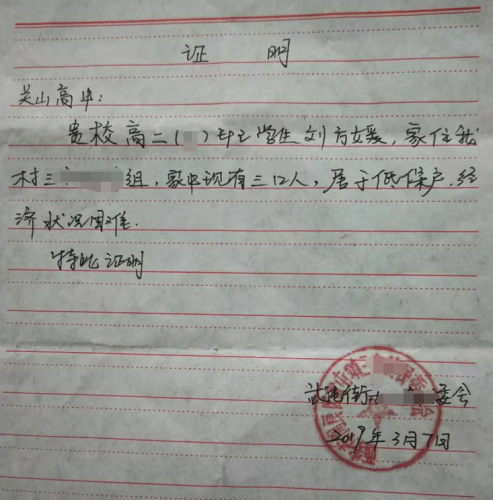 证 明
吴山高中:
贵校高二( )班学生刘方媛,家住我
村三 组,家中现有三口人,属于低保户.经
济状况困难.
特此证明
委会
2019年3月7日